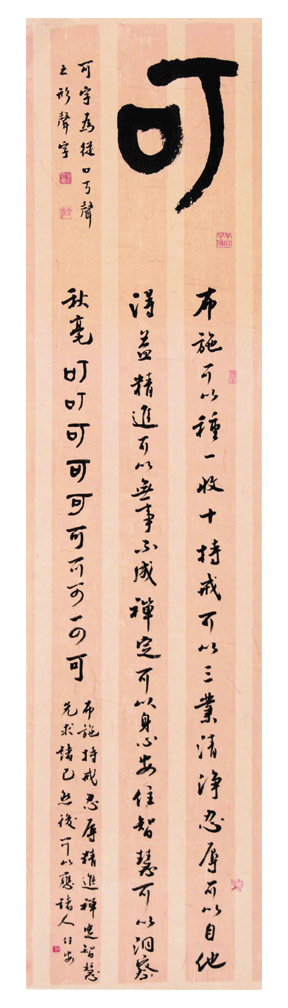 可
可字為從口丂聲
之形聲字
布施可以種一收十持戒可以三業清淨忍辱可以自他
得益精進可以無事不成禪定可以身心安住智慧可以洞察
秋毫可可可可可可可可可可
布施持戒忍辱精進禪定智慧
先求諸己然後可以應諸人